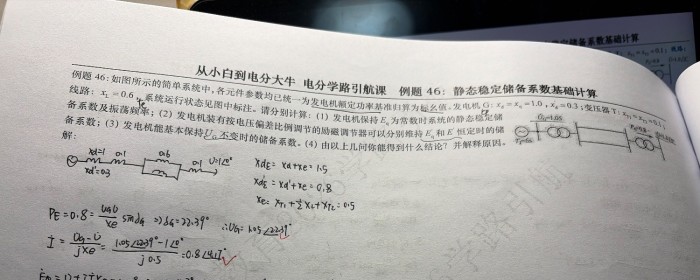 从小白到电分大牛 电分学路引航课 例题 46：静态稳定储备系数基础计算
储备系数基础计算
例题 46：如图所示的简单系统中，各元件参数均已统一为发电机额定功率基准归算为标幺值，发电机 G：x_d=x_q=1.0，x'_d=0.3；变压器 T：x_T1=x_T2=0.1；
线路：x_L=0.6。系统运行状态见图中标注。请分别计算：(1) 发电机保持 E_q 为常数时系统的静态稳定储
备系数及振荡频率；(2) 发电机装有按电压偏差比例调节的励磁调节器可以分别维持 E'_q 和 E' 恒定时的储
备系数；(3) 发电机能基本保持 U_G 不变时的储备系数。(4) 由以上几问你能得到什么结论？并解释原因。
U_G=1.05
解：
xd=1 0.1 0.6 0.1 U=1∠0°
xd'=0.3
xdΣ = xd+xe = 1.5
xd'Σ = xd'+xe = 0.8
xe = xT1+½xL+xT2 = 0.5
PE=0.8= UGU/xe sinδG ⇒ δG=22.39° ∴UG=1.05∠22.39°
İ = (U̇G-U̇)/jxe = (1.05∠22.39°-1∠0°)/j0.5 =0.8